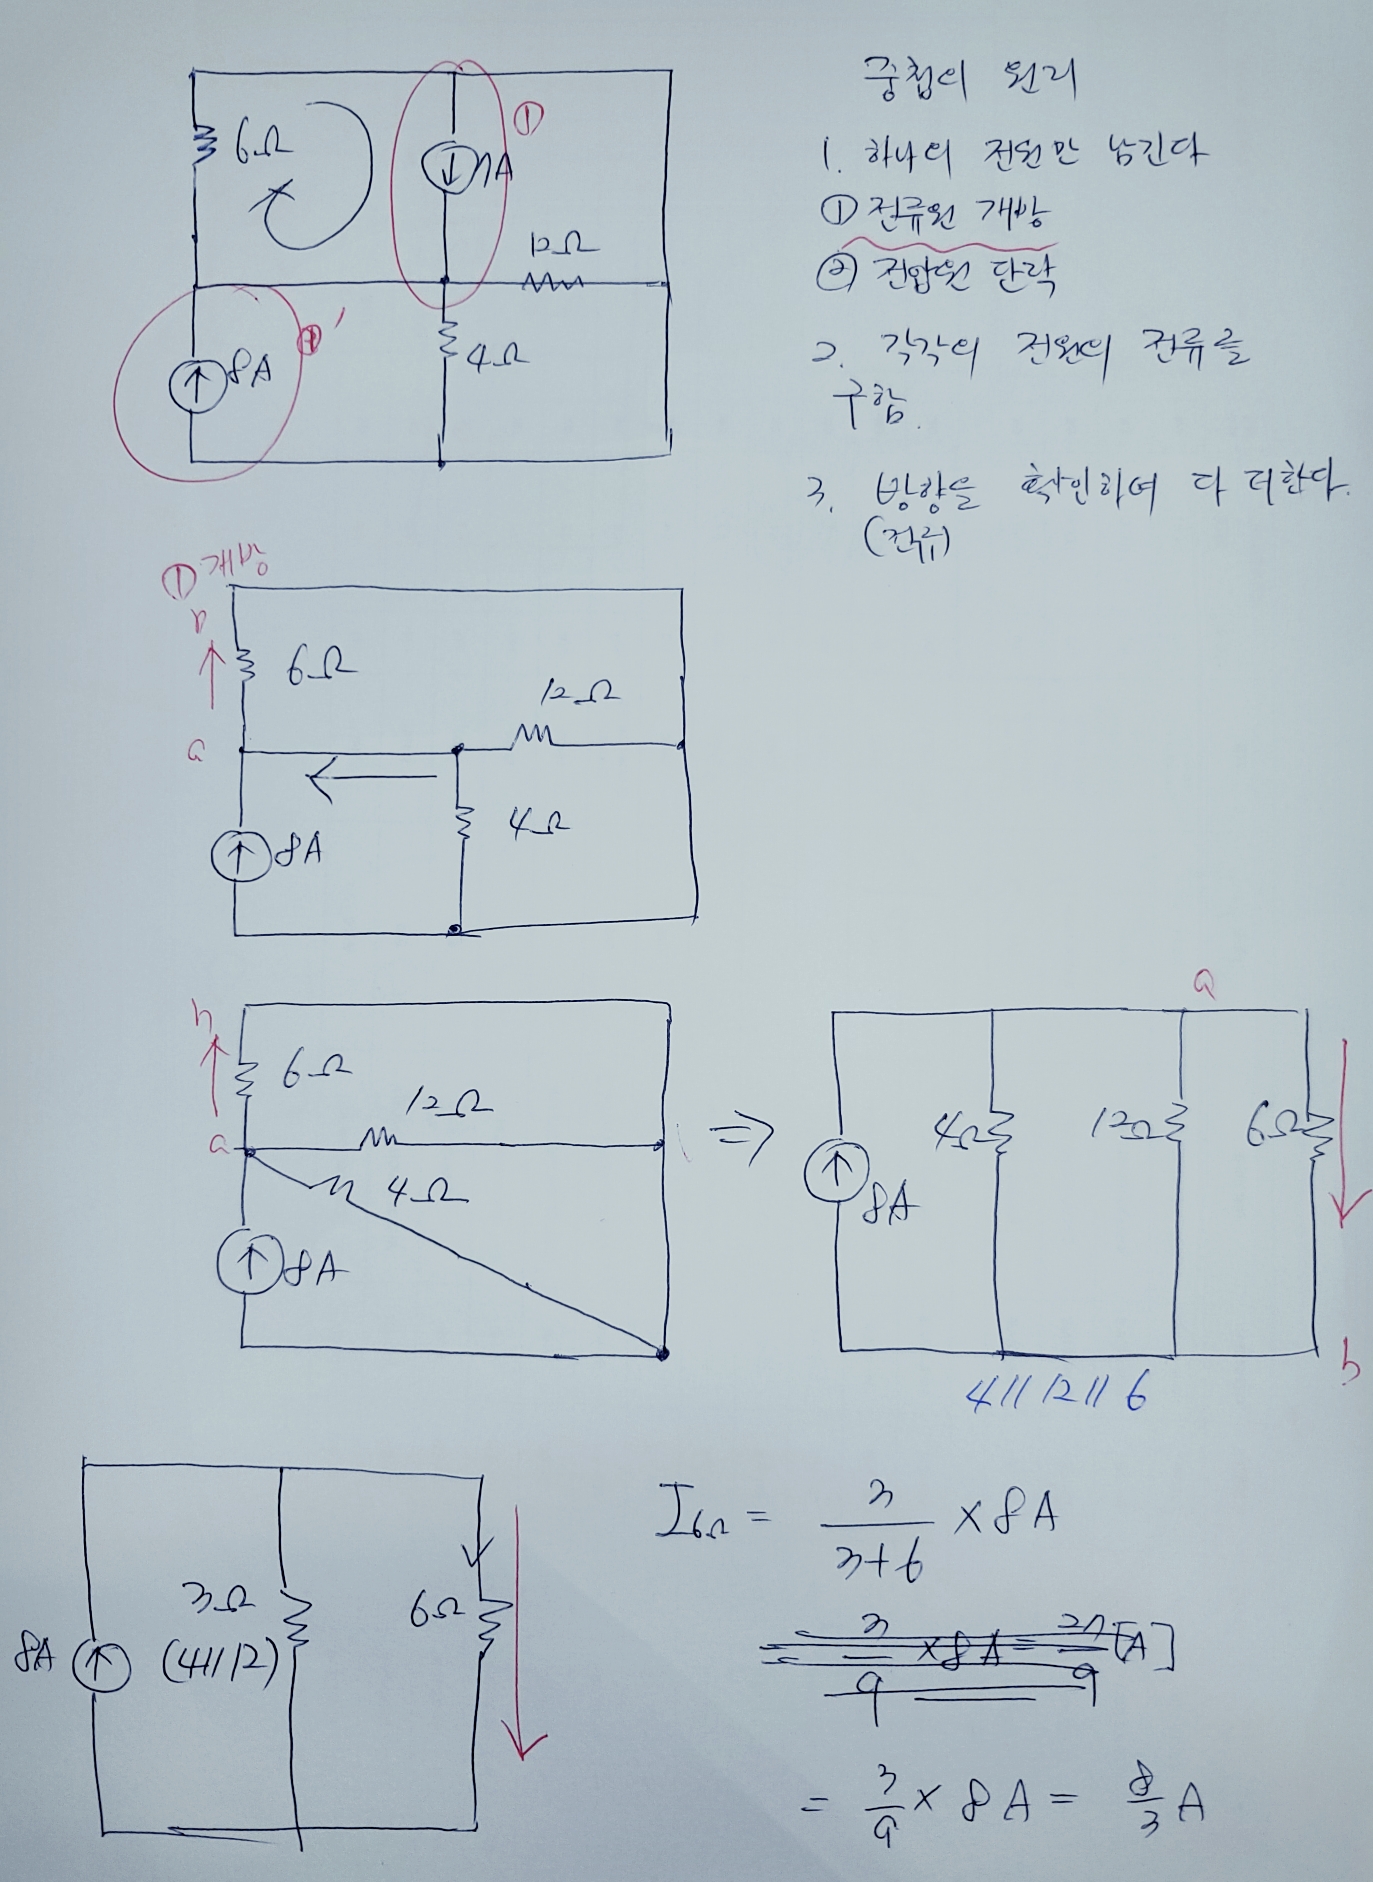 중첩의 원리
1. 하나의 전원만 남긴다
① 전류원 개방
② 전압원 단락
2. 각각의 전원의 전류를
구함.
3. 방향을 확인하여 다 더한다.
(전류)
6Ω
①
12Ω
8A
4Ω
① 개방
b
6Ω
12Ω
a
4Ω
8A
b
6Ω
12Ω
a
4Ω
8A
⇒
a
4Ω
12Ω
6Ω
8A
b
4//12//6
3Ω
6Ω
8A
(4//12)
I6Ω = 3/(3+6) × 8A
= 3/9 × 8A = [A]
= 3/9 × 8A = 8/3 A